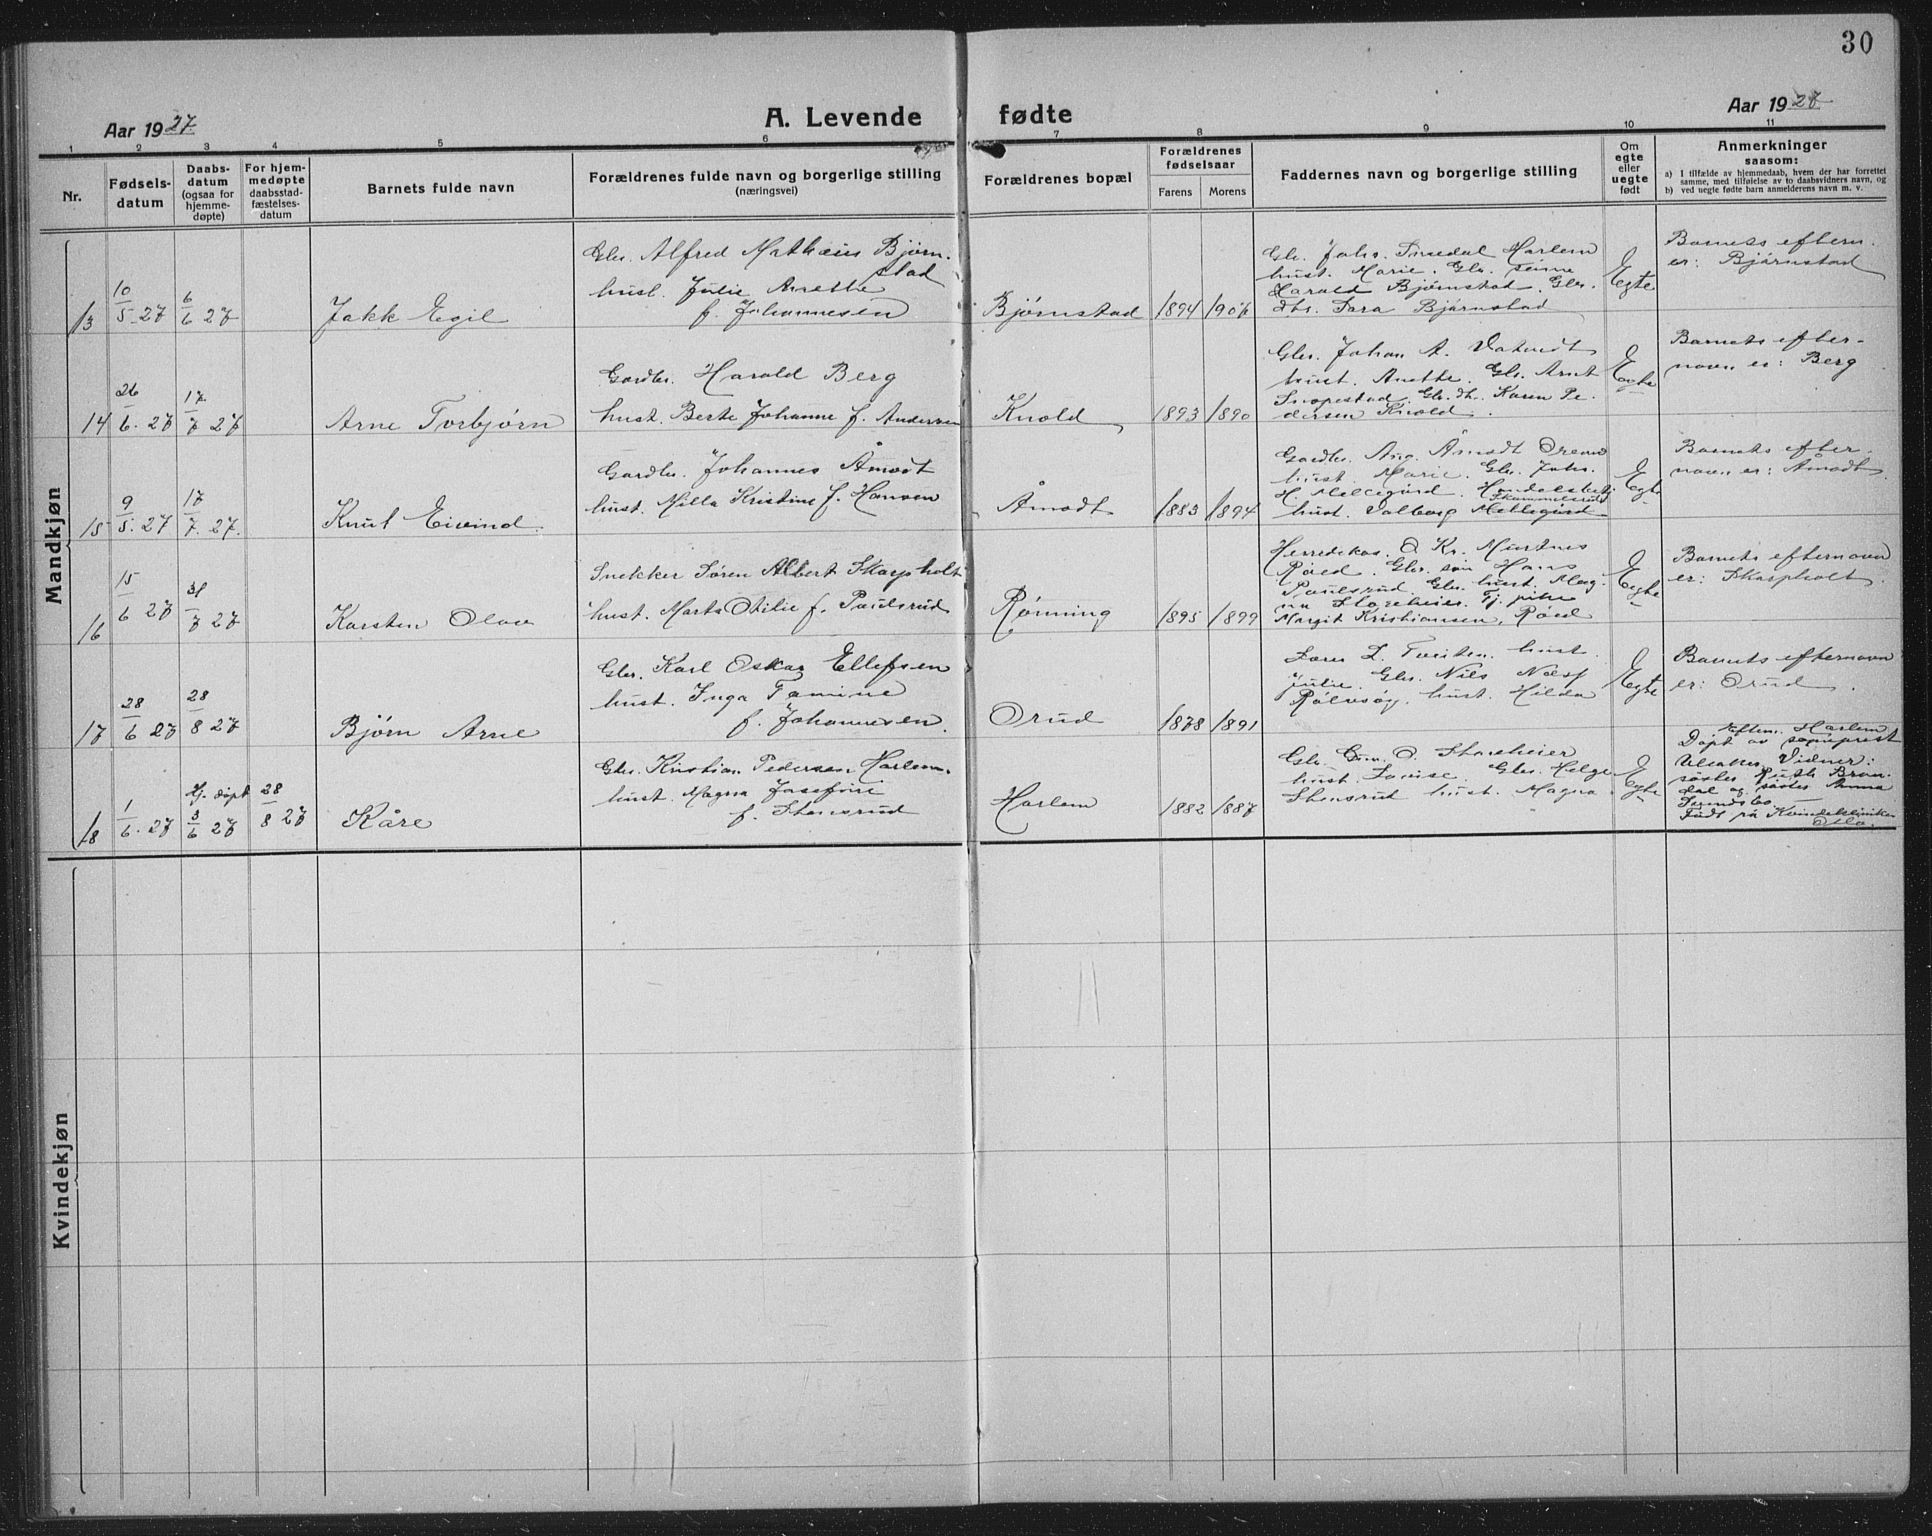 30
Aar 1927.
A. Levende fødte
Aar 1927
1 2 3 4 5 6 7 8 9 10 11
Nr.
Fødsels-
datum
Daabs-
datum
(ogsaa for
hjemme-
døpte)
For hjem-
medøpte
daabsstad-
fæstelses-
datum
Barnets fulde navn
Forældrenes fulde navn og borgerlige stilling
(næringsvei)
Forældrenes bopæl
Forældrenes
fødselsaar
Farens Morens
Faddernes navn og borgerlige stilling
Om
egte
eller
uegte
født
Anmerkninger
saasom:
a) I tilfælde av hjemmedaab, hvem der har forrettet
samme, med tilføielse av to daabsvidners navn, og
b) ved uegte fødte barn anmelderens navn m. v.
Mandkjøn
13
10/5. 27
6/6 27
Jakk Egil
Gbr. Alfred Mathæus Bjørn-
stad
hust. Julie Anette
f. Johannesen
Bjørnstad
1894
1907
Gbr. Johs. Harlem
hust. Marie. Gbr. sønne
Harald Bjørnstad. Gbr.
dtr. Sara Bjørnstad
Egte
Barnets eftern.
er: Bjørnstad
14
26/6. 27
17/7 27
Arne Torbjørn
Gardbr. Harald Berg
hust. Berte Johanne f. Andersen
Knold
1893
1890
Gbr. Johan A. Vatvedt
hust. Anette. Gbr. Arnt
Snopestad. Gbr. dtr. Karen Pe-
dersen Knold.
Egte
Barnets efter-
navn er: Berg
15
9/5. 27
17/7. 27.
Knut Eivind
Gardbr. Johannes Åmodt
hust. Milla Kristine f. Hansen
Åmodt
1883
1894
Gardbr. Aug. Åmodt
hust. Marie. Gbr. Johs.
H. Mellegård.
hust. Valborg Mellegård
Egte
Barnets efter-
navn er: Åmodt
16
15/6 27
31/7 27
Karsten Olav
Snekker Søren Albert Skarpholt
hust. Marta Otilie f. Paulsrud
Rønning
1895
1899
Herredskas. O. Kr.
Røed. Gbr. søn Hans
Paulsrud. Gbr. hust. Mag-
na Storeheier. Tj. pike
Margit Kristiansen, Røed
Egte
Barnets efternavn
er: Skarpholt
17
28/6 27
28/8 27
Bjørn Arne
Gbr. Karl Oskar Ellefsen
hust. Inga Tamine
f. Johannesen.
Orud
1878
1891
Lars L. Tveiten. hust.
Julie. Gbr. Nils Næss
Rølvsøy. hust. Hilda
Egte
Barnets efternavn
er: Orud.
18
1/6. 27
Hj. døpt
3/6 27
28/8 27
Kåre
Gbr. Kristian Pedersen Harlem.
hust. Magna Josefine
f. Stensrud
Harlem
1882
1887
Gbr. O. Storeheier
hust. Lovise. Gbr. Helge
Stensrud hust. Magna.
Egte
Eftern. Harlem
Døpt av sogneprest
Vidner:
søster Ruth Bron-
dal og søster Anna
Født på Kvindeklinikken
Oslo.
Kvindekjøn